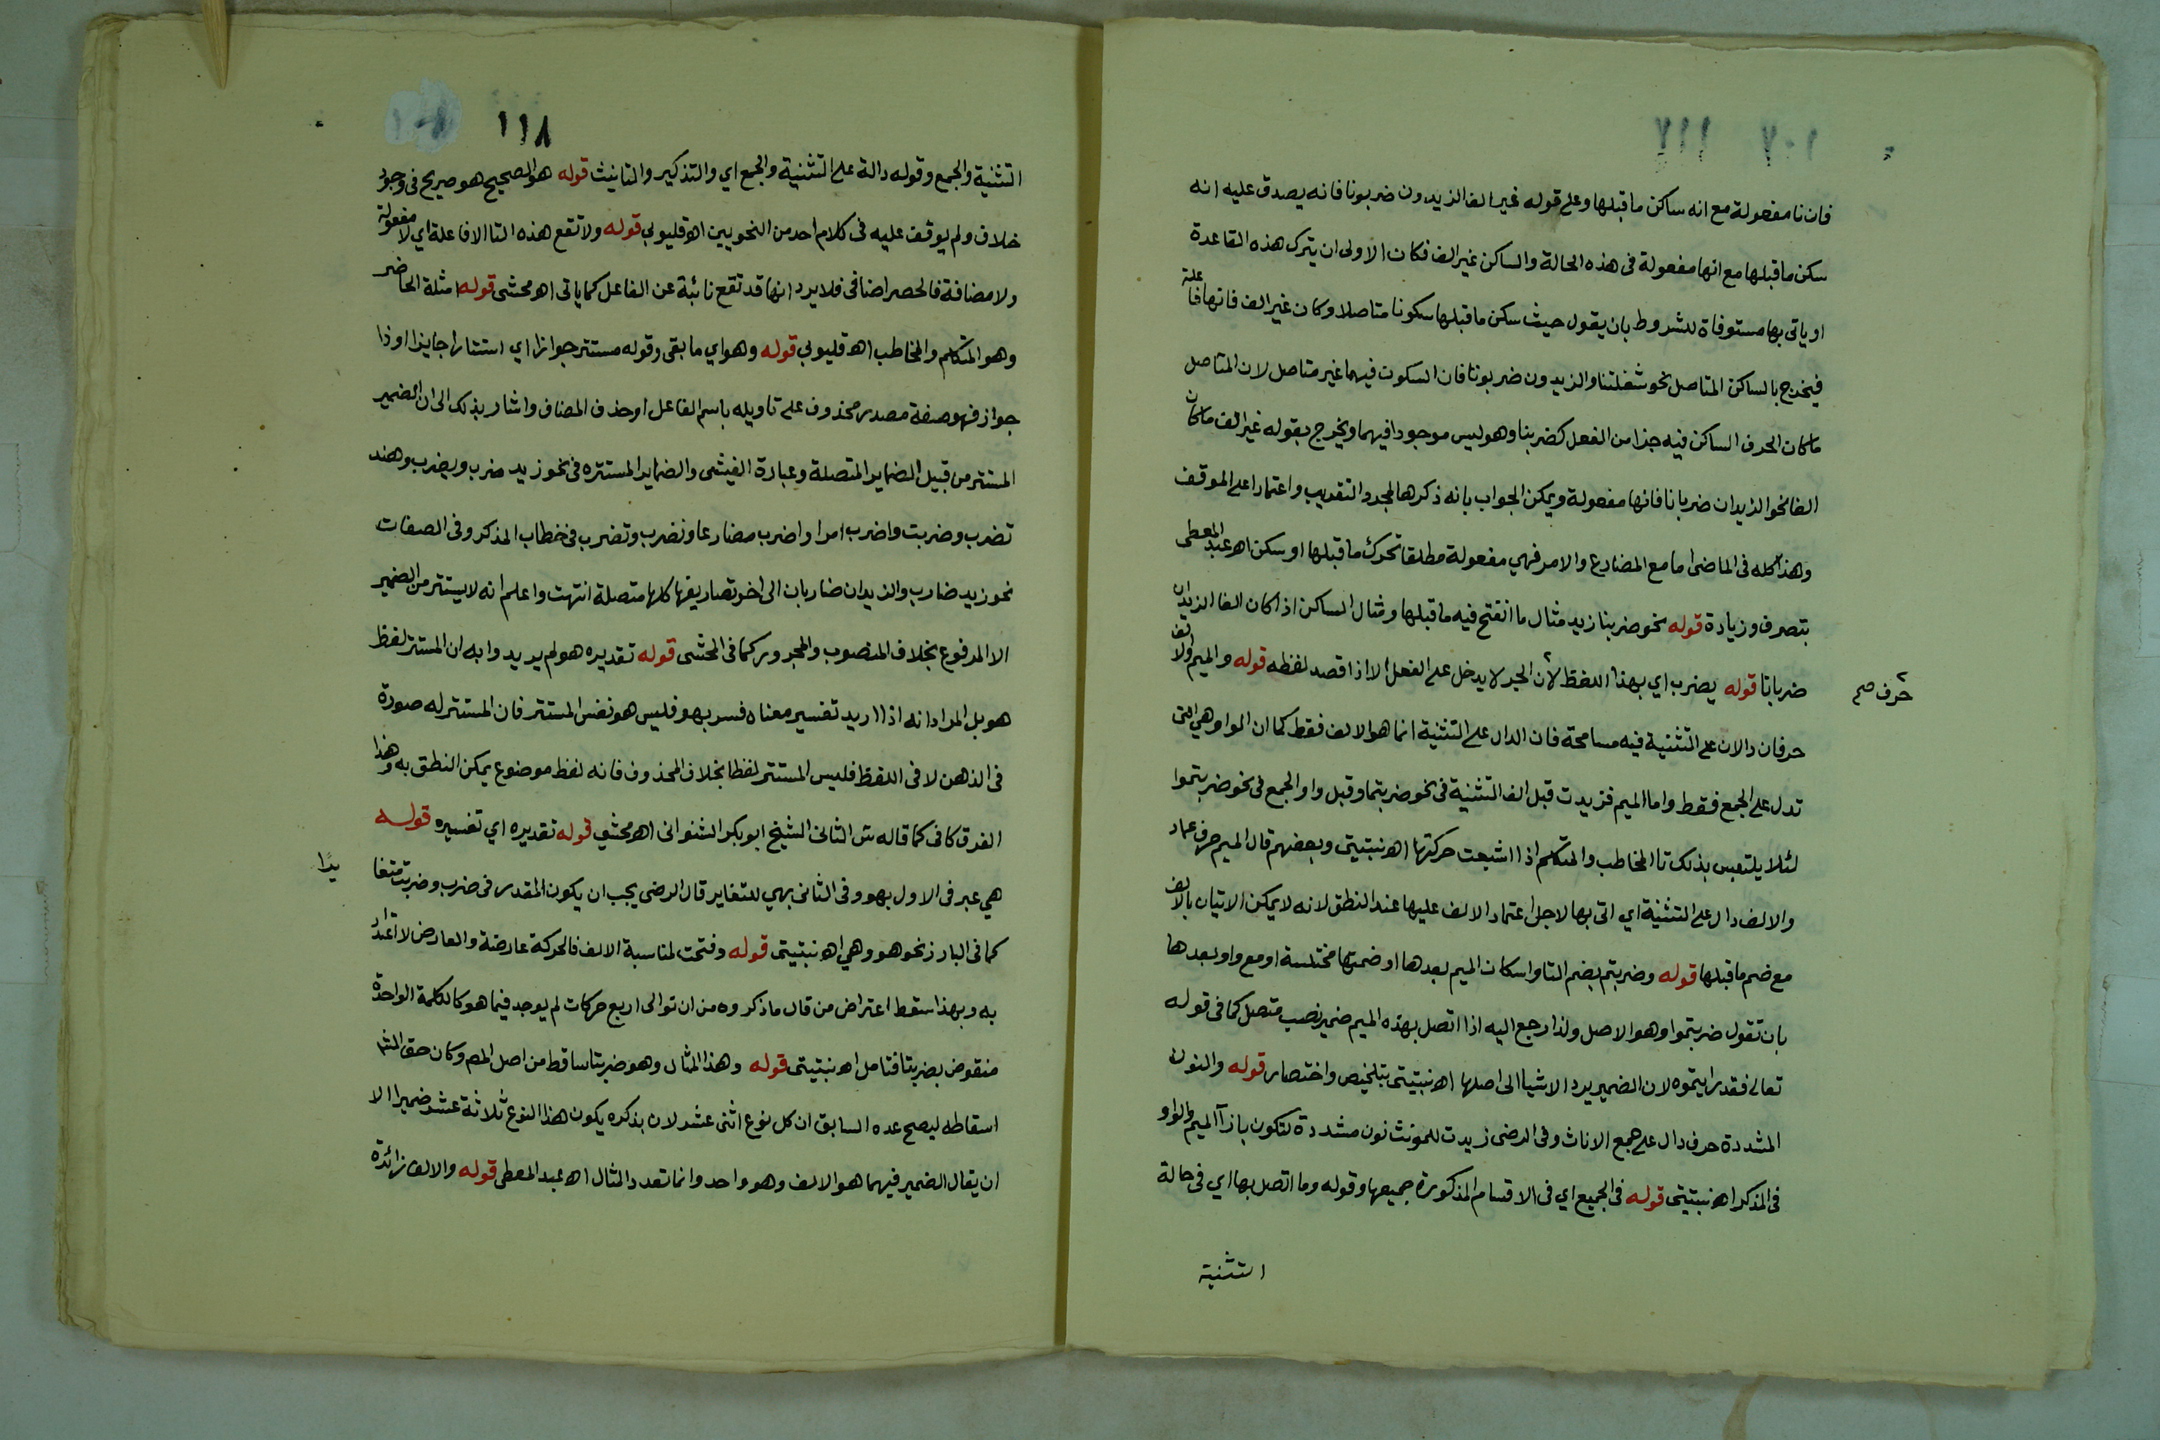 فان نا مفعولة مع انه ساكن ما قبلها وعلى قوله غير الف الزيدون ضربونا فانه يصدق عليه انه
سكن ما قبلها مع انها مفعولة فى هذه الحالة والساكن غير الف فكان الاولى ان يترك هذه القاعدة
او ياتى بها مستوفاة للشروط بان يقول حيث سكن ما قبلها سكونا متاصلا وكان غير الف فانها فاعلة
فيخرج بالساكن المتاصل نحو شغلتنا والزيدون ضربونا فان السكون فيهما غير متاصل لان المتاصل
ما كان الحرف الساكن فيه جزا من الفعل كضربنا وهو ليس موجودا فيهما ويخرج بقوله غير الف ما كان
الفا نحو الزيدان ضربانا فانها مفعولة ويمكن الجواب بانه ذكرها لمجرد التقريب واعتمادا على الموقف
وهذا كله فى الماضى اما مع المضارع والامر فهي مفعولة مطلقا تحرك ما قبلها او سكن اهـ عبد المعطى
بتصرف وزيادة قوله نحو ضربنا زيد مثال ما انفتح فيه ما قبلها ومثال الساكن اذا كان الفا الزيدان
ضربانا قوله يضرب اي بهذا اللفظ لان الجر لا يدخل على الفعل الا اذا قصد لفظه قوله والميم والالف
حرف صح
حرفان دالان على التثنية فيه مسامحة فان الدال على التثنية انما هو الالف فقط كما ان الواو هي التى
تدل على الجمع فقط واما الميم فزيدت قبل الف التثنية فى نحو ضربتما وقبل واو الجمع فى نحو ضربتموا
لئلا يلتبس بذلك تا المخاطب والمتكلم اذا اشبعت حركتها اهـ نبتيتى وبعضهم قال الميم حرف عماد
والالف دال على التثنية اي اتى بها لاجل اعتماد الالف عليها عند النطق لانه لا يمكن الاتيان بالالف
مع ضم ما قبلها قوله وضربتم بضم التا واسكان الميم بعدها او ضمتها مختلسة او مع واو بعدها
بان تقول ضربتموا وهو الاصل ولذا رجع اليه اذا اتصل بهذه الميم ضمير نصب متصل كما فى قوله
تعالى فقد رايتموه لان الضمير يرد الاشيا الى اصلها اهـ نبتيتى بتلخيص واختصار قوله والنون
المشددة حرف دال على جمع الاناث وفى الرضى زيدت للمونث نون مشددة لتكون بازآ الميم والواو
فى المذكر اهـ نبتيتى قوله فى الجميع اي فى الاقسام المذكورة جميعها وقوله وما اتصل بها اي فى حالة
التثنية
١١٨
التثنية والجمع وقوله دالة على التثنية والجمع اي والتذكير والتانيث قوله هو الصحيح هو صريح فى وجود
خلاف ولم يوقف عليه فى كلام احد من النحويين اهـ قليوبي قوله ولا تقع هذه التا الا فاعلة اي لا مفعولة
ولا مضافة فالحصر اضافى فلا يرد انها قد تقع نائبة عن الفاعل كما ياتى اهـ محشى قوله امثلة الحاضر
وهو المتكلم والمخاطب اهـ قليوبي قوله وهو اي ما بقى وقوله مستتر جوازا اي استتارا جايزا او ذا
جواز فهو صفة مصدر محذوف على تاويله باسم الفاعل او حذف المضاف واشار بذلك الى ان الضمير
المستتر من قبيل الضماير المتصلة وعبارة الفيشى والضماير المستتره فى نحو زيد ضرب ويضرب وهند
تضرب وضربت واضرب امرا واضرب مضارعا ونضرب وتضرب فى خطاب المذكر وفى الصفات
نحو زيد ضارب والزيدان ضاربان الى اخر تصاريفها كلها متصلة انتهت واعلم انه لا يستتر من الضمير
الا المرفوع بخلاف المنصوب والمجرور كما فى المحشى قوله تقديره هو لم يريدوا به ان المستتر لفظ
هو بل المراد انه اذا اريد تفسير معناه فسر بهو فليس هو نفس المستتر فان المستتر له صورة
فى الذهن لا فى اللفظ فليس المستتر لفظا بخلاف المحذوف فانه لفظ موضوع يمكن النطق به وهذا
الفرق كافى كما قاله ش الثانى الشيخ ابو بكر الشنوانى اهـ محشى قوله تقديره اي تفسيره قوله
هي عبر فى الاول بهو وفى الثانى بهي للتغاير قال الرضى يجب ان يكون المقدر فى ضرب وضربت متغا
يرا
كما فى البارز نحو هو وهي اهـ نبتيتى قوله وفتحت لمناسبة الالف فالحركة عارضة والعارض لا اعتداد
به وبهذا سقط اعتراض من قال ما ذكروه من ان توالى اربع حركات لم يوجد فيما هو كالكلمة الواحدة
منقوض بضربتا فتامل اهـ نبتيتى قوله وهذا المثال وهو ضربتا ساقط من اصل المص وكان حق الش
اسقاطه ليصح عده السابق ان كل نوع اثنى عشر لان بذكره يكون هذا النوع ثلاثة عشر ضميرا الا
ان يقال الضمير فيهما هو الالف وهو واحد وانما تعدد المثال اهـ عبد المعطى قوله والالف زائدة